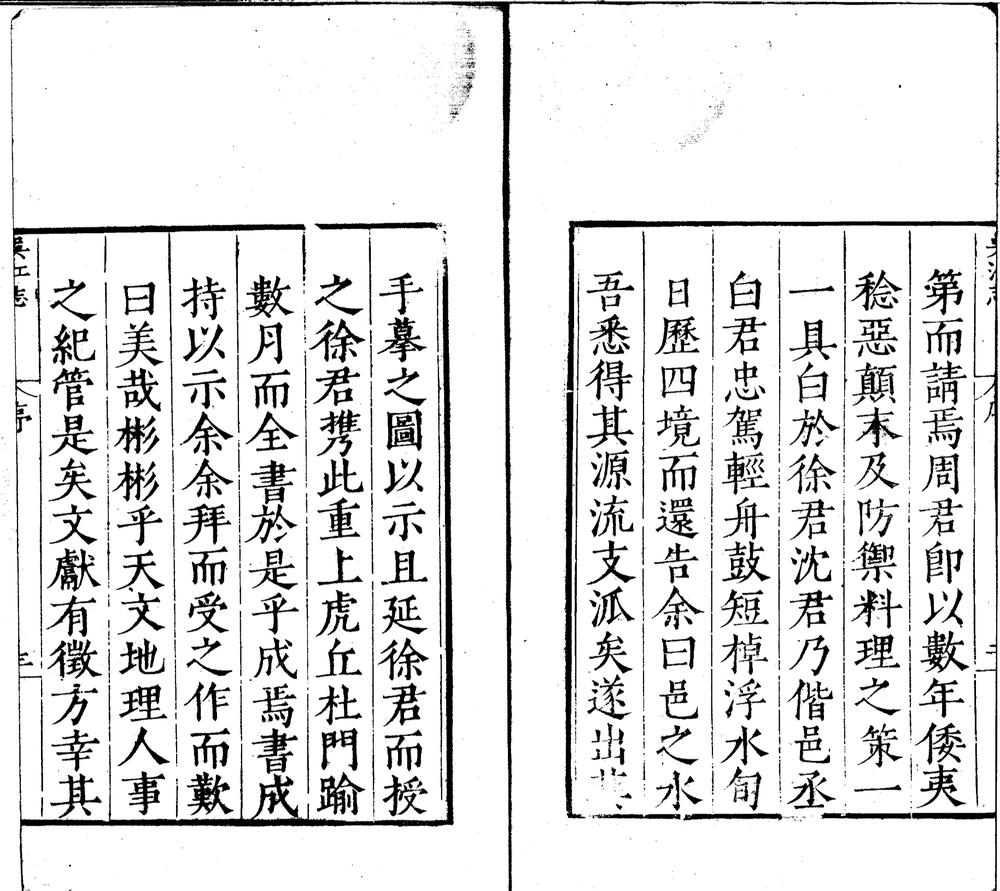 第而請焉周君卽以數年倭夷
稔惡顛末及防禦料理之策一
一具白於徐君沈君乃偕邑丞
白君忠駕輕舟鼓短棹浮水旬
日歷四境而還告余曰邑之水
吾悉得其源流支派矣遂出其
手摹之圖以示且延徐君而授
之徐君携此重上虎丘杜門踰
數月而全書於是乎成焉書成
持以示余余拜而受之作而歎
曰美哉彬彬乎天文地理人事
之紀管是矣文獻有徵方幸其
吳江志
序